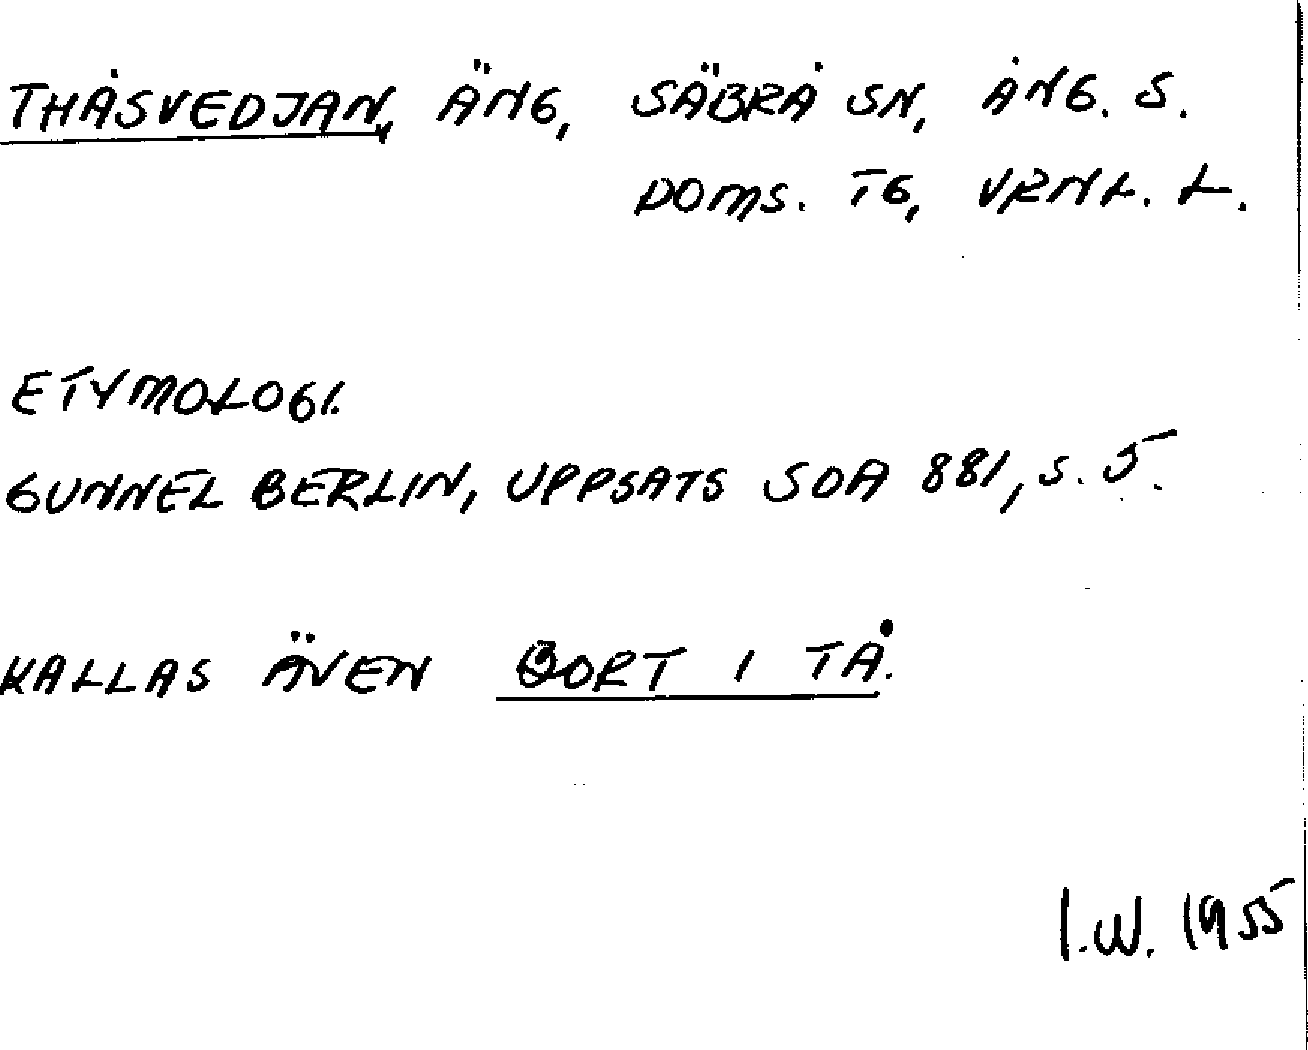 THÅSVEDJAN, ÄNG, SÄBRÅ SN, ÅNG. S.
DOMS. TG, VRNL. L.
ETYMOLOGI.
GUNNEL BERLIN, UPPSATS SOA 881, S. 5.
KALLAS ÄVEN BORT I TÅ.
I.W. 1955